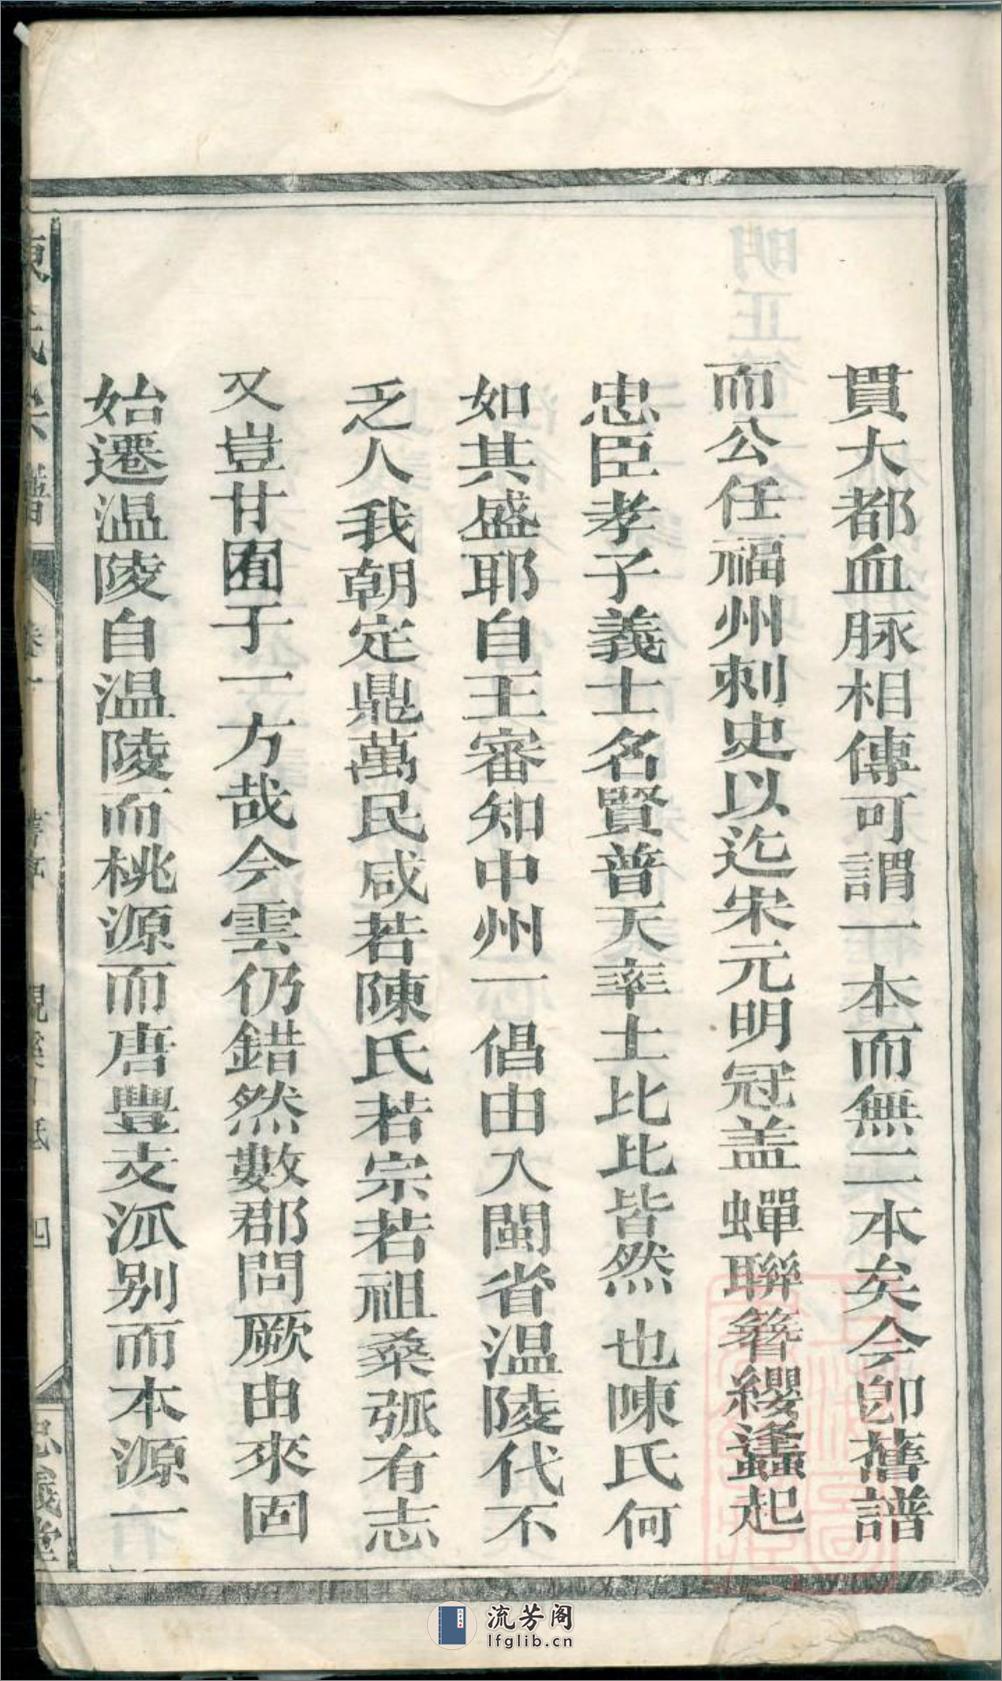 貫大都血脉相傳可謂一本而無二本矣今卽舊譜
而公任福州刺史以迄宋元明冠盖蟬聯簪纓蠭起
忠臣孝子義士名賢普天率土比比皆然也陳氏何
如其盛耶自王審知中州一倡由入閩省温陵代不
乏人我朝定鼎萬民咸若陳氏若宗若祖桑弧有志
又豈甘囿于一方哉今雲仍錯然數郡問厥由來固
始遷温陵自温陵而桃源而唐豐支泒别而本源一
陳氏宗譜
卷一
舊序
四
忠義堂
流芳阁
lfglib.cn